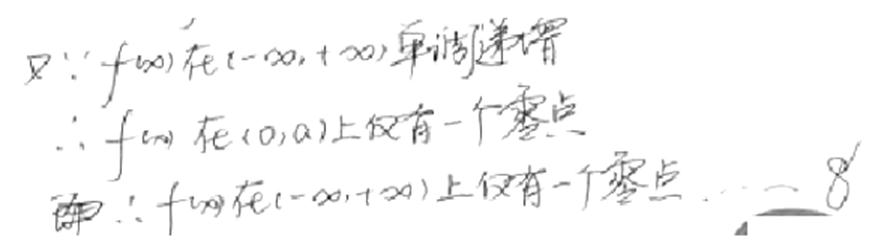 又∵f(x)在(-∞,+∞)单调递增
∴f(x)在(0,a)上仅有一个零点
∴f(x)在(-∞,+∞)上仅有一个零点 ...... 8